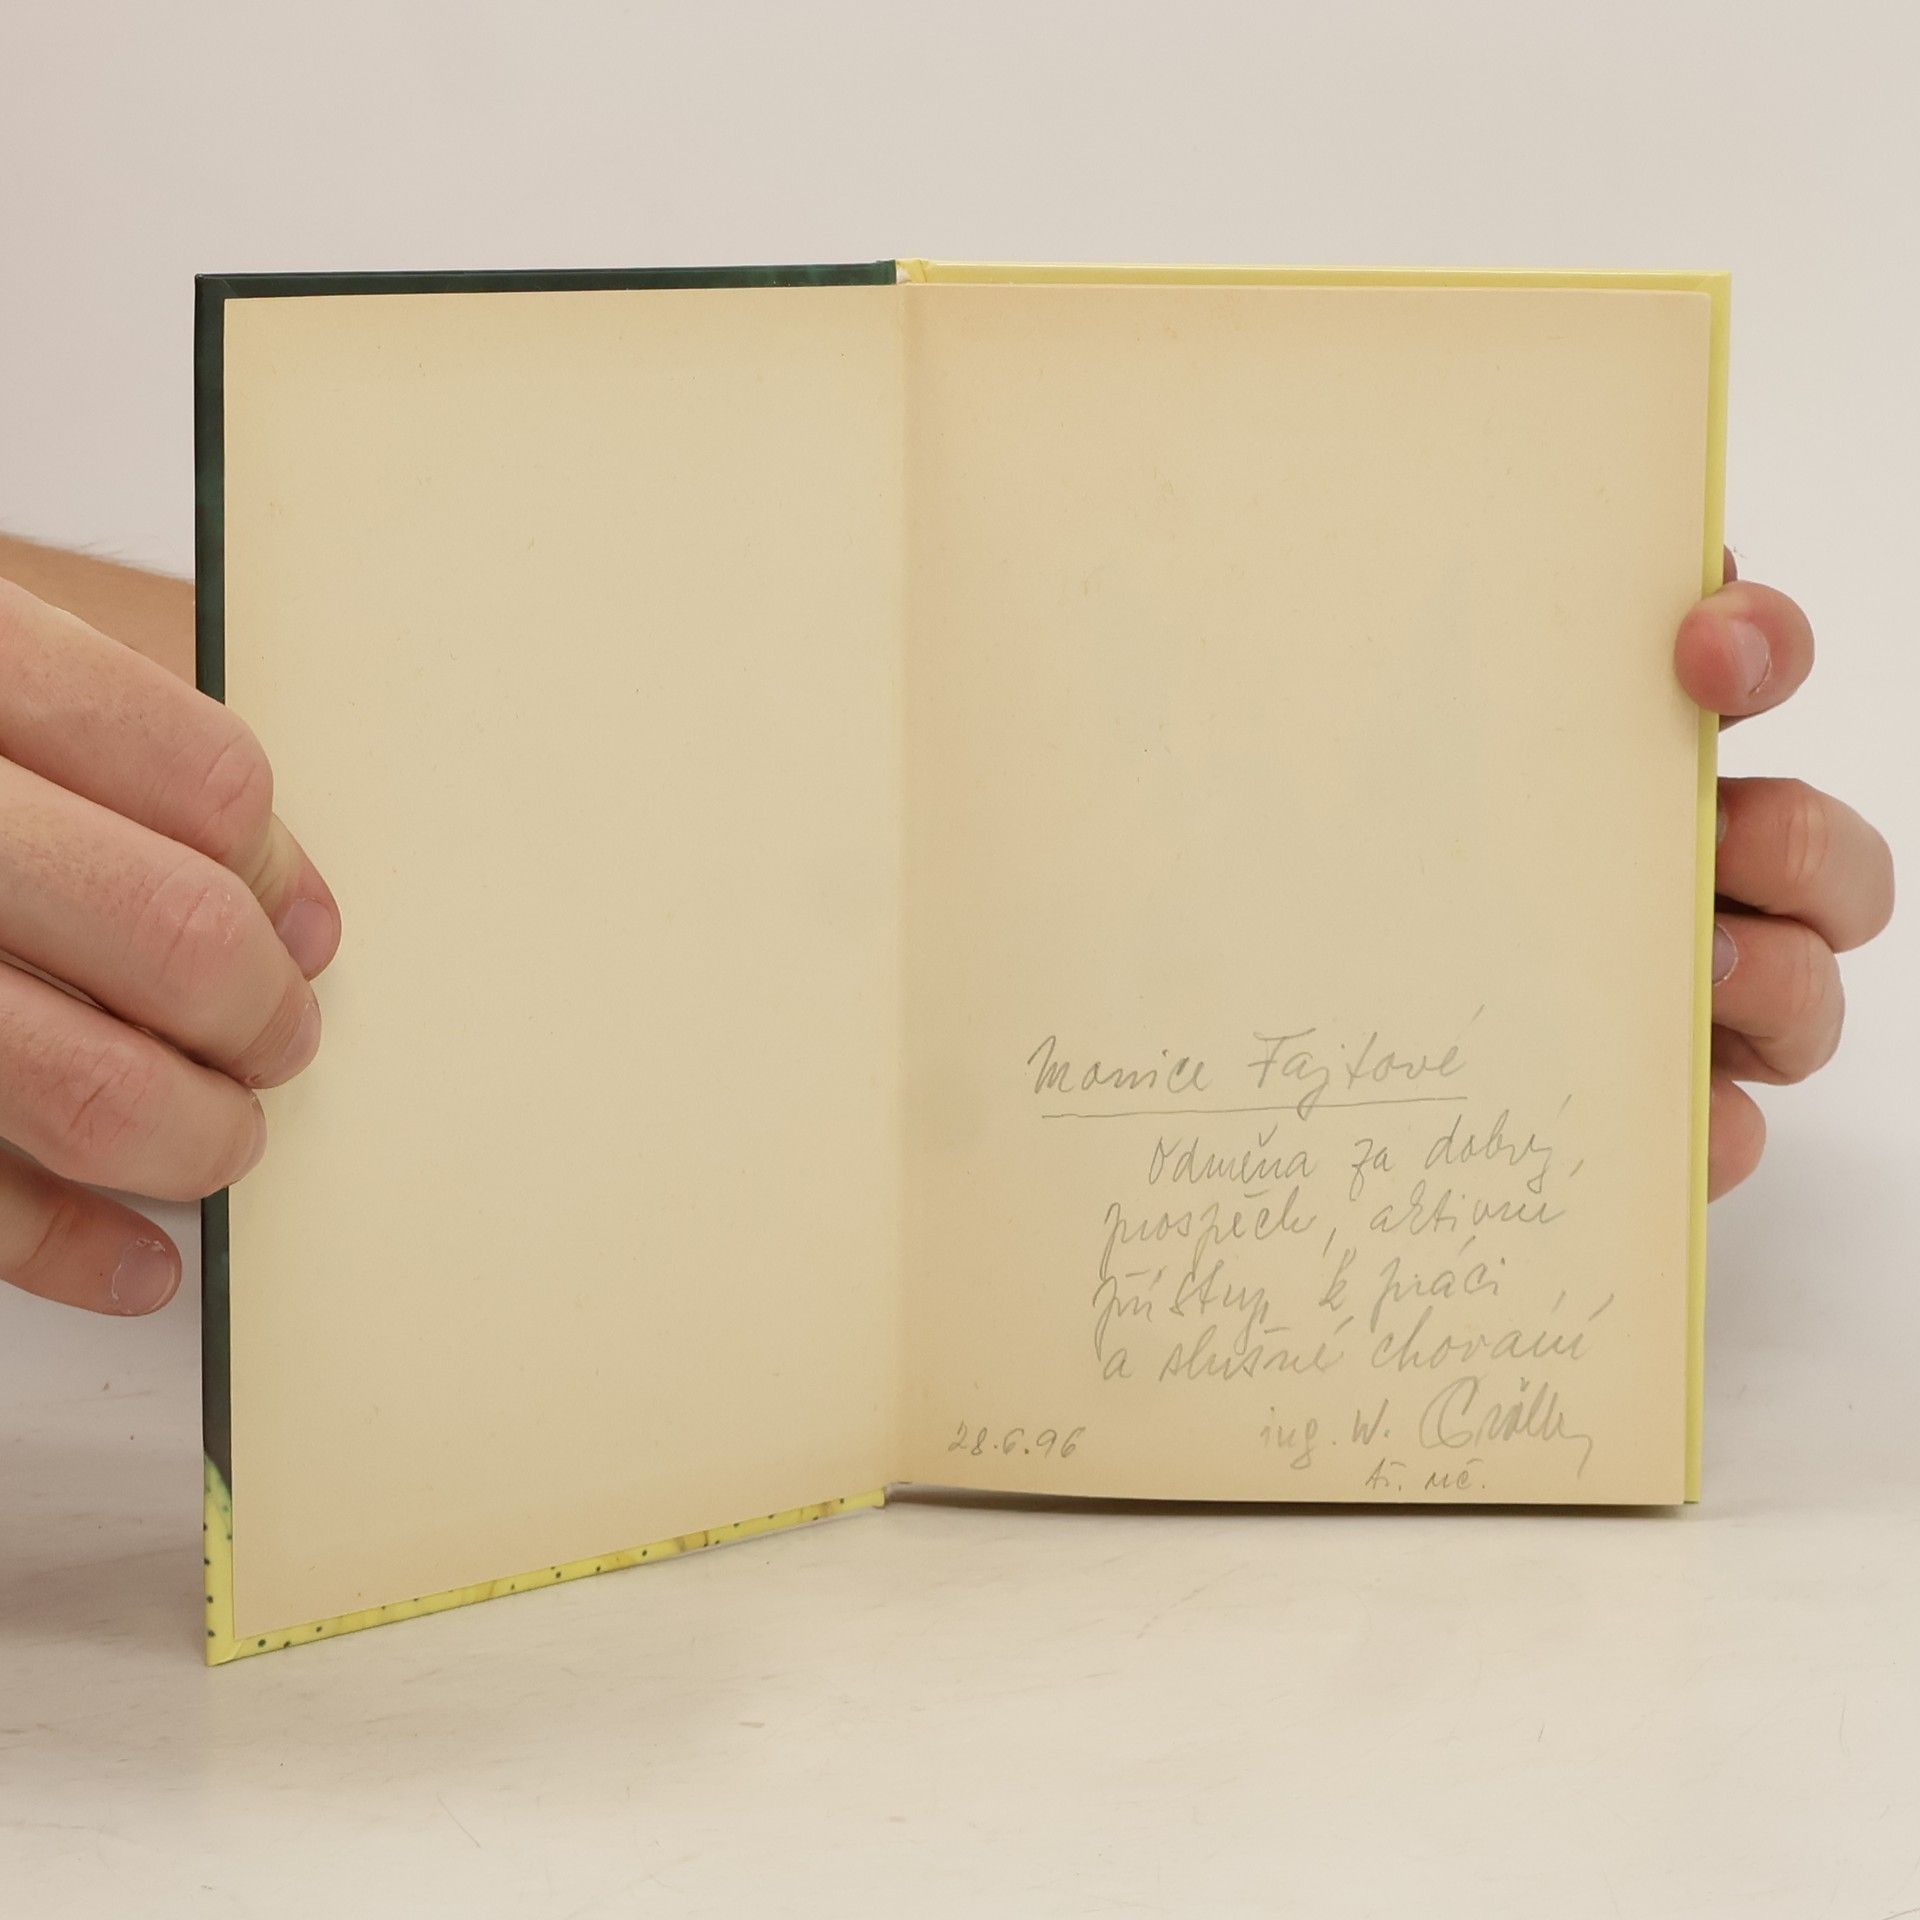 Monice Fajtové
Odměna za dobrý
prospěch, aktivní
přístup k práci
a slušné chování
28.6.96 ing. W.
tř. uč.